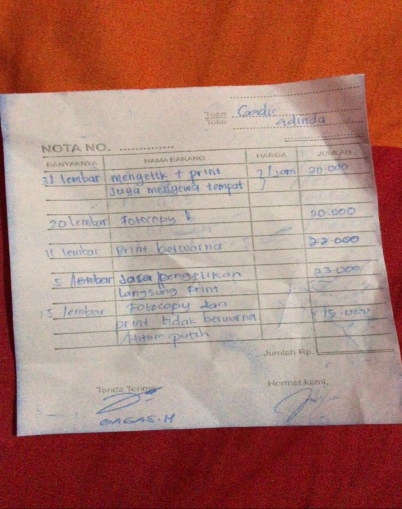 Tuan
Toko
Gadis
adinda
NOTA NO. ..............
BANYAKNYA NAMA BARANG HARGA JUMLAH
31 lembar mengetik + print 20.000
Juga menyewa tempat
20 lembar Fotocopy 20.000
11 lembar Print berwarna 22.000
5 lembar Jasa pengetikan 23.000
langsung Print
15 lembar Fotocopy dan 15.000
print tidak berwarna
hitam putih
Jumlah Rp.
Tanda Terima Hormat kami,
BAGAS.H